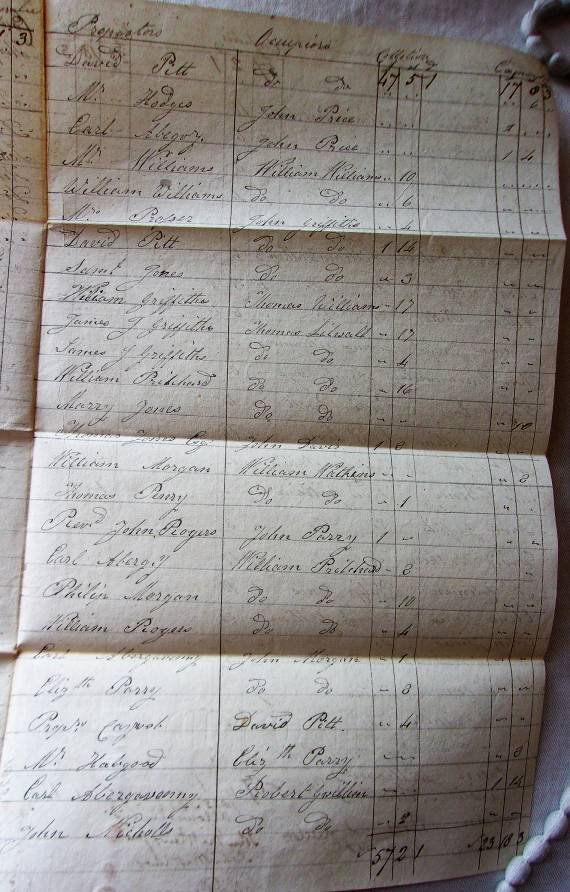 Proprietors Occupiers Collection
David Pitt do do 47 5 1 17 8 3
Mr Hodges John Price " " " 6
Earl Abegy. John Price " " 1 4
Mr Williams William Williams " 10
William Williams do do " 6 " "
Mrs Roser John Griffiths " 4 " "
David Pitt do do 1 14 " "
Saml Jones do do " 3 " "
William Griffiths Thomas Williams " 17 " "
James J Griffiths Thomas " 17 " "
James J Griffiths do do " 4 " "
William Pritchard do do " 16 " "
Marry Jones do do " " " 10
Thomas Jones Esqr John Davis 1 8 " "
William Morgan William Watkins " " " 8
Thomas Perry do do " 1 " "
Revd John Rogers John Parry 1 " " "
Earl Abergy William Pritchard " 8 " "
Philip Morgan do do " 10 " "
William Rogers do do " 4 " "
Earl Abergavenny John Morgan " 1 " "
Elizth Parry do do " 3 " "
David Pitt " 4 " "
Mr Habgood Elizth Parry " " " 8
Earl Abergavenny Robert Gwillim " " 1 14
John Nicholls do do " 2 " "
57 2 1 23 18 3